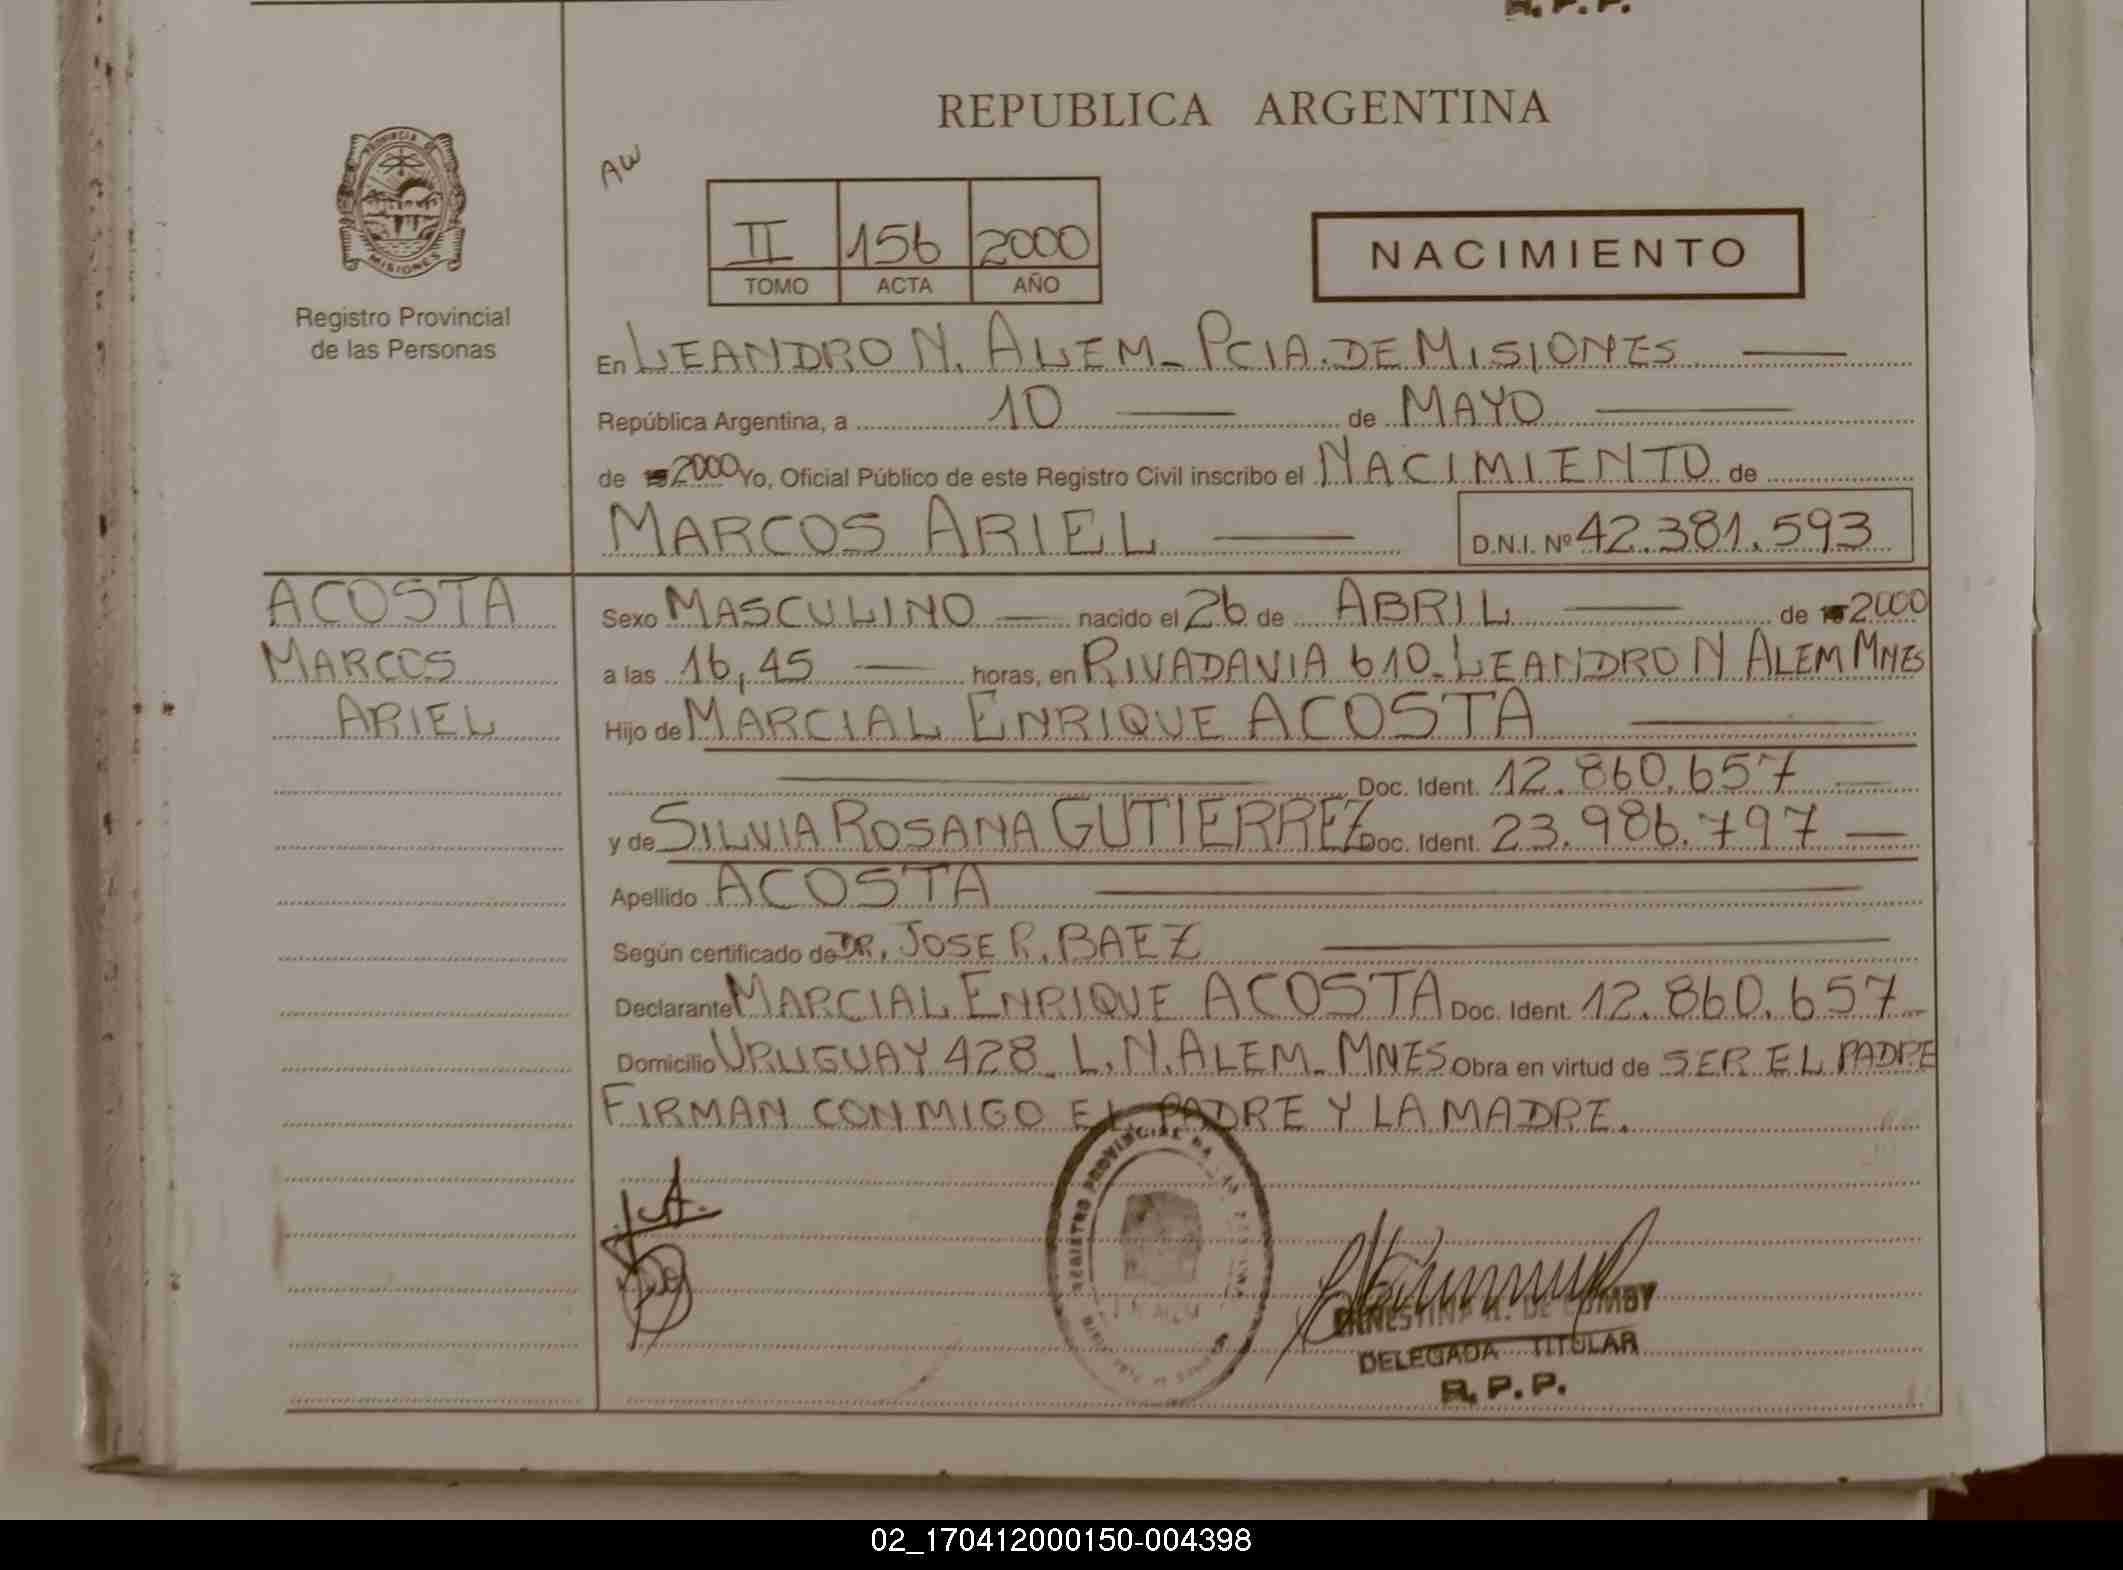 R.P.P.
REPUBLICA ARGENTINA
PROVINCIA DE
MISIONES
Registro Provincial
de las Personas
AW
II 156 2000
TOMO ACTA AÑO
NACIMIENTO
En LEANDRO N. ALEM - PCIA. DE MISIONES
República Argentina, a 10 de MAYO
de 2000 Yo, Oficial Público de este Registro Civil inscribo el NACIMIENTO de
MARCOS ARIEL D.N.I. Nº 42.381.593
ACOSTA
MARCOS
ARIEL
Sexo MASCULINO nacido el 26 de ABRIL de 2000
a las 16,45 horas, en RIVADAVIA 610 - LEANDRO N ALEM MNES
Hijo de MARCIAL ENRIQUE ACOSTA
Doc. Ident. 12.860.657
y de SILVIA ROSANA GUTIERREZ Doc. Ident. 23.986.797
Apellido ACOSTA
Según certificado de DR. JOSE R. BAEZ
Declarante MARCIAL ENRIQUE ACOSTA Doc. Ident. 12.860.657
Domicilio URUGUAY 428 - L.N. ALEM - MNES Obra en virtud de SER EL PADRE
FIRMAN CONMIGO EL PADRE Y LA MADRE.
REGISTRO PROVINCIAL
DELEGADA TITULAR
R.P.P.
02_170412000150-004398